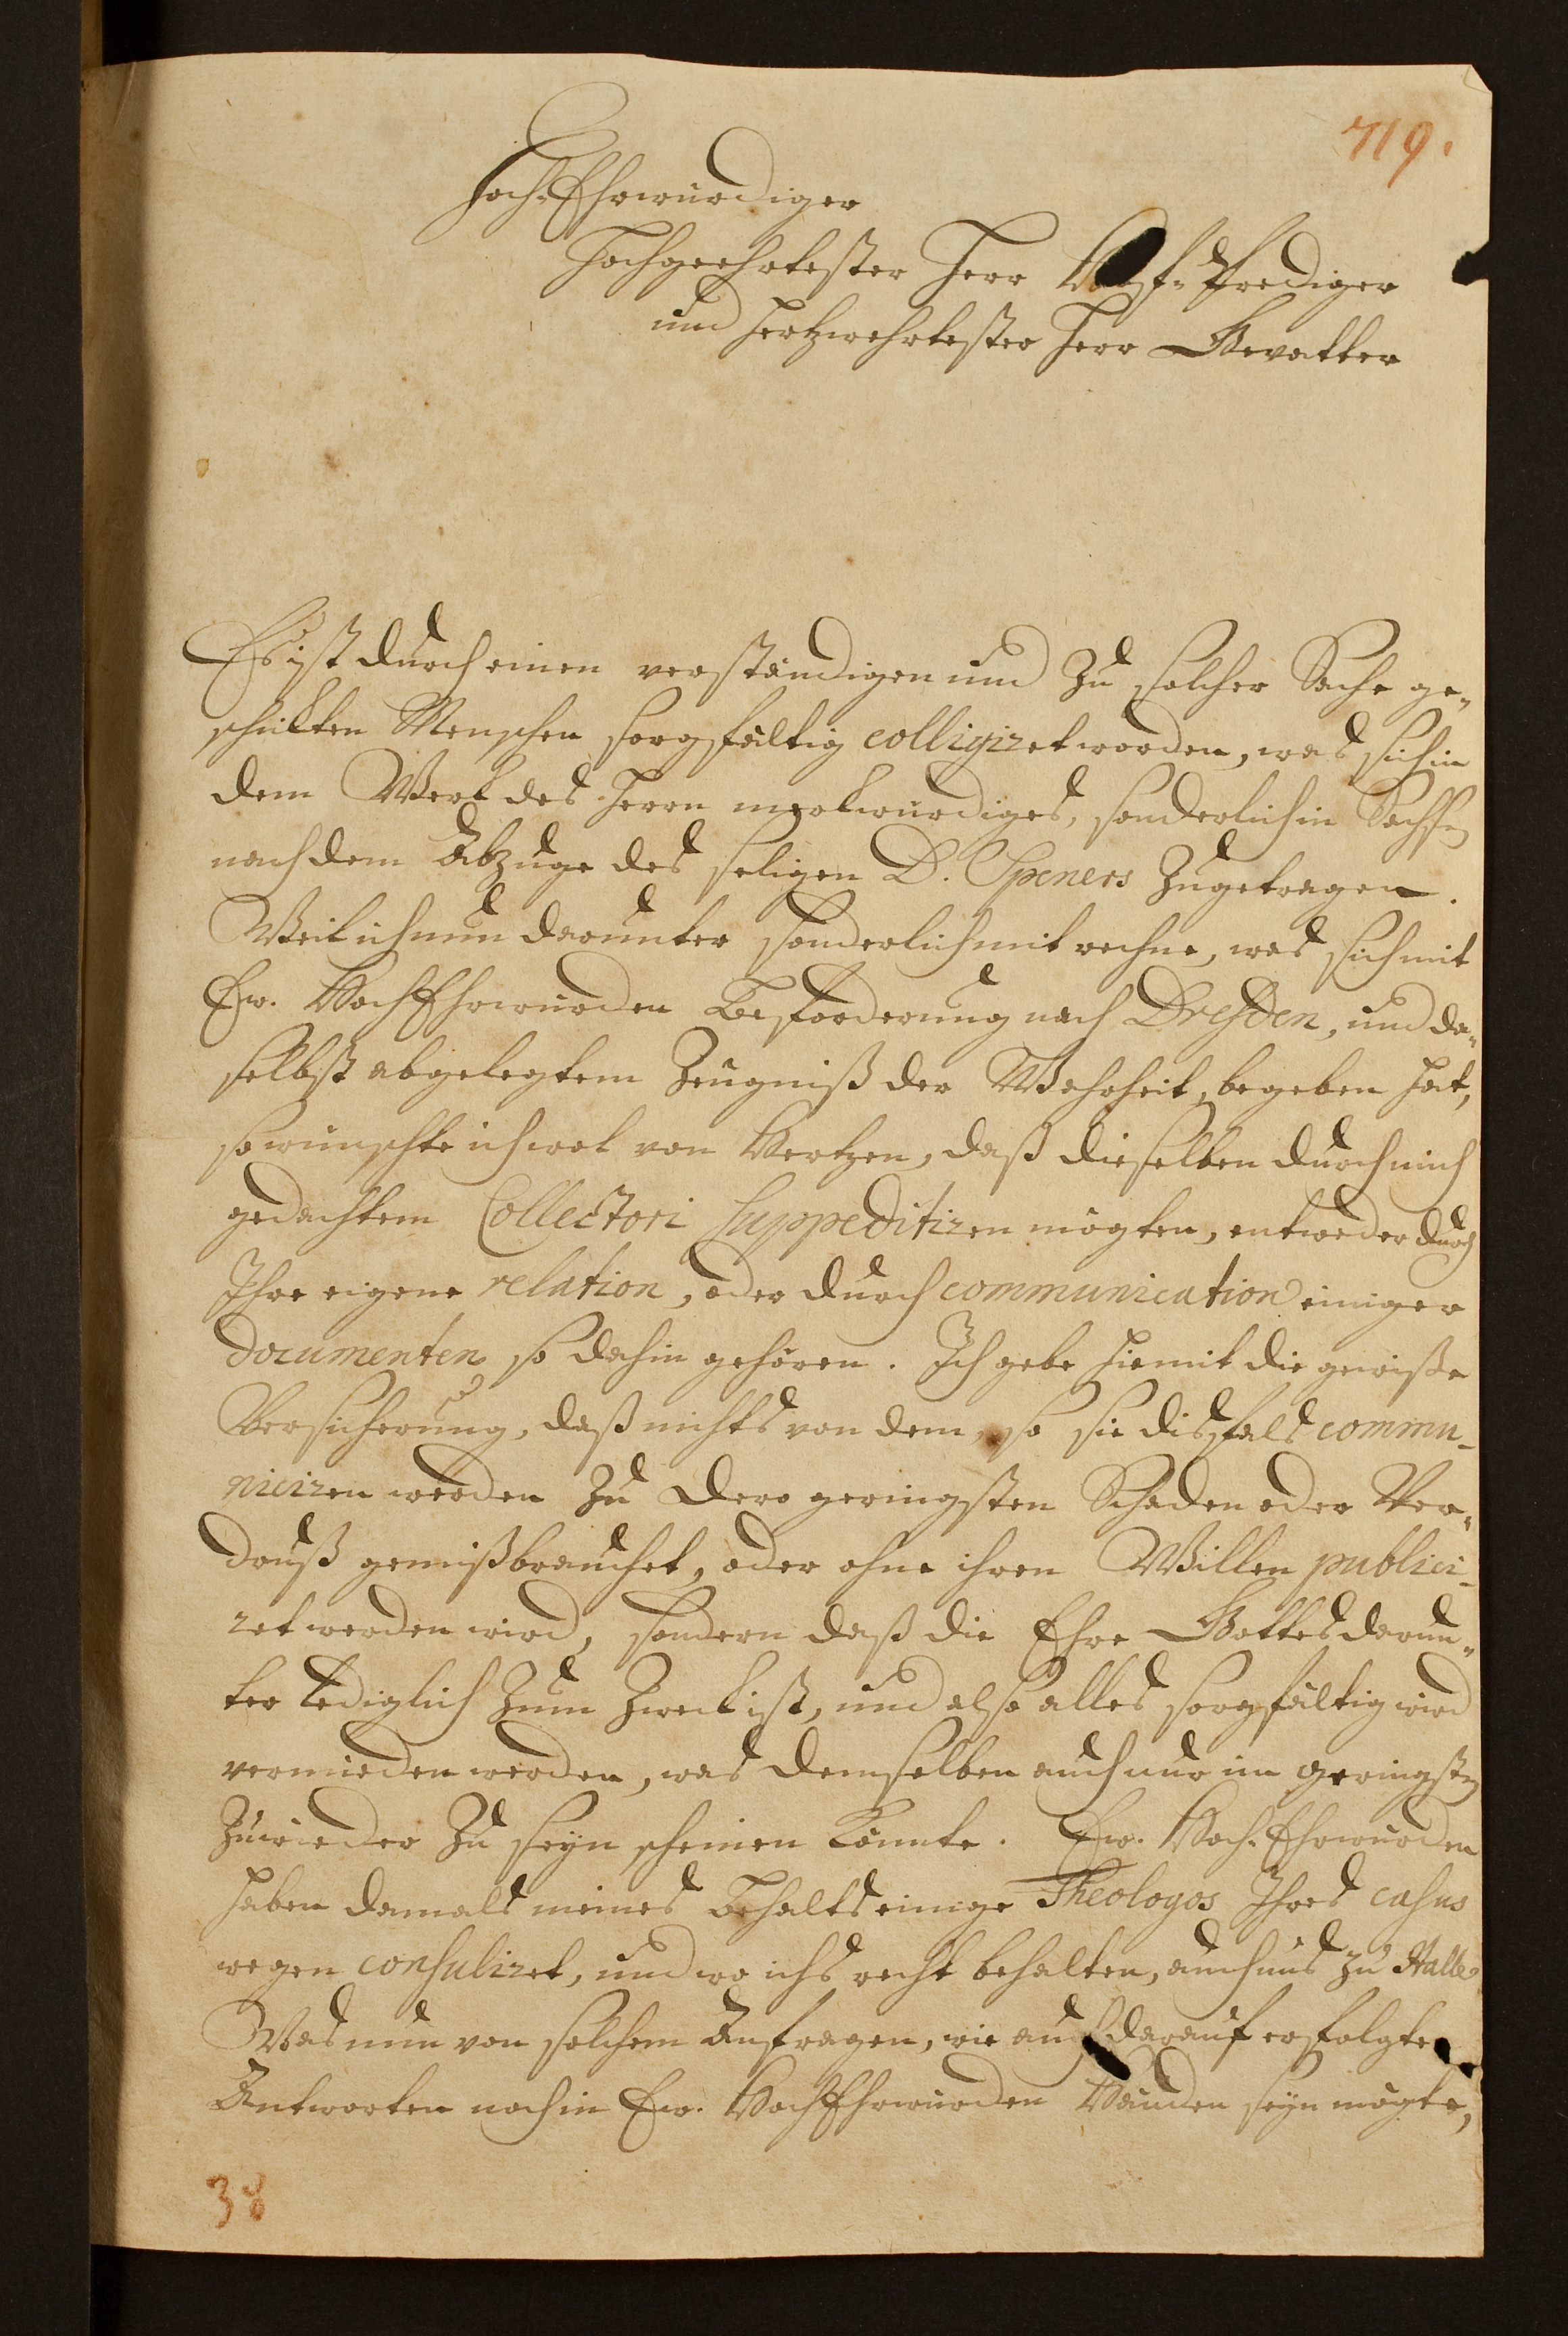 719.
Hoch-Ehrwürdiger
Hochgeehrtester Herr Hof-Prediger
und Hertzwehrtester Herr Gevatter
Es ist durch einen verständigen und zu solcher Sache ge-
schickten Menschen sorgfältig colligiret worden, was sich in
dem Werck des Herrn merckwürdiges, sonderlich in Sachsen
nach dem Abzuge des seligen D. Speners zugetragen.
Weil ich nun darunter sonderlich mit rechne, was sich mit
Ew. HochEhrwürden Beförderung nach Dresden, und da-
selbst abgelegtem Zeugniß der Wahrheit, begeben hat,
so wünschte ich wol von Hertzen, daß dieselben durch mich
gedachtem Collectori suppeditiren mögten, entweder durch
Ihre eigene relation, oder durch communication einiger
documenten so dahin gehören. Ich gebe hiemit die gewisse
Versicherung, daß nichts von dem, so sie disfals commu-
niciren werden zu Dero geringsten Schaden oder Ver-
druß gemißbrauchet, oder ohne ihren Willen publici-
ret werden wird, sondern daß die Ehre Gottes darun-
ter lediglich zum Zweck ist, und also alles sorgfältig wird
vermieden werden, was demselben auch nur im geringsten
zuwieder zu seyn scheinen könnte. Ew. Hoch-Ehrwürden
haben damals meines Behalts einige Theologos Ihres casus
wegen consuliret, und wo ichs recht behalten, auch uns zu Halle
Was nun von solchem Anfragen, wie auch darauf erfolgten
Antworten noch in Ew. HochEhrwürden Händen seyn mögte,
38